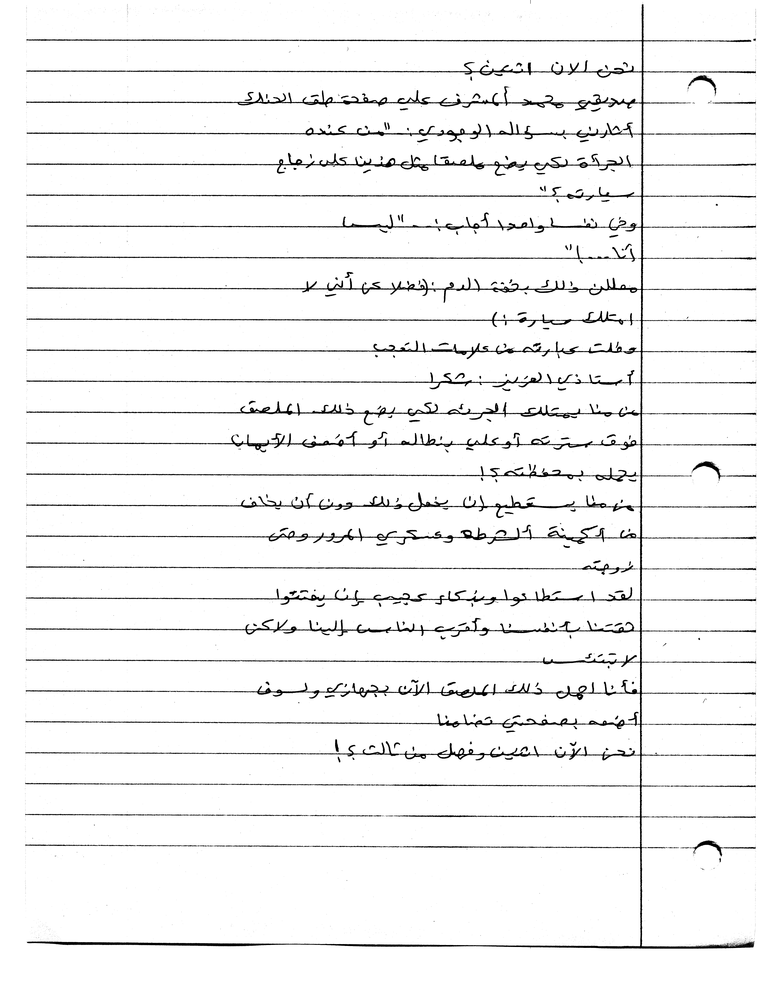 نحن الان اثنين؟
صديقي محمد ألمشرف على صفحة طق الحنك
أثارني بسؤاله الوجودي: "من عنده
الجرأة لكي يضع ملصقا مثل هذينا على زجاج
سيارته؟"
وفي نفسا واحدا أجاب:.. "ليسا
أنا....!"
معللن ذلك بخفة الدم :(فضلا عن أنني لا
امتلك سيارة :)
وظلت عبارته من علامات التعجب
أستاذي العزيز : شكرا
من منا يمتلك الجرئه لكي يضع ذلك الملصق
فوق سترته أوعلى بنطاله أو أضعف الأيمان
يحمله بمحفظته؟!
من منا يستطيع إن يفعل ذلك دون أن يخاف
من أكمينة ألشرطه وعسكري المرور وحتى
زوجته
لقد استطاعوا وبذكاء عجيب إن يفتتوا
ثقتنا بأنفسنا وأقرب الناس إلينا ولاكن
لا تبتئسا
فأنا احمل ذلك الملصق الآن بجهازي ولسوف
أضعه بصفحتي تضامنا
نحن الآن اثنين وفهل من ثالث؟!